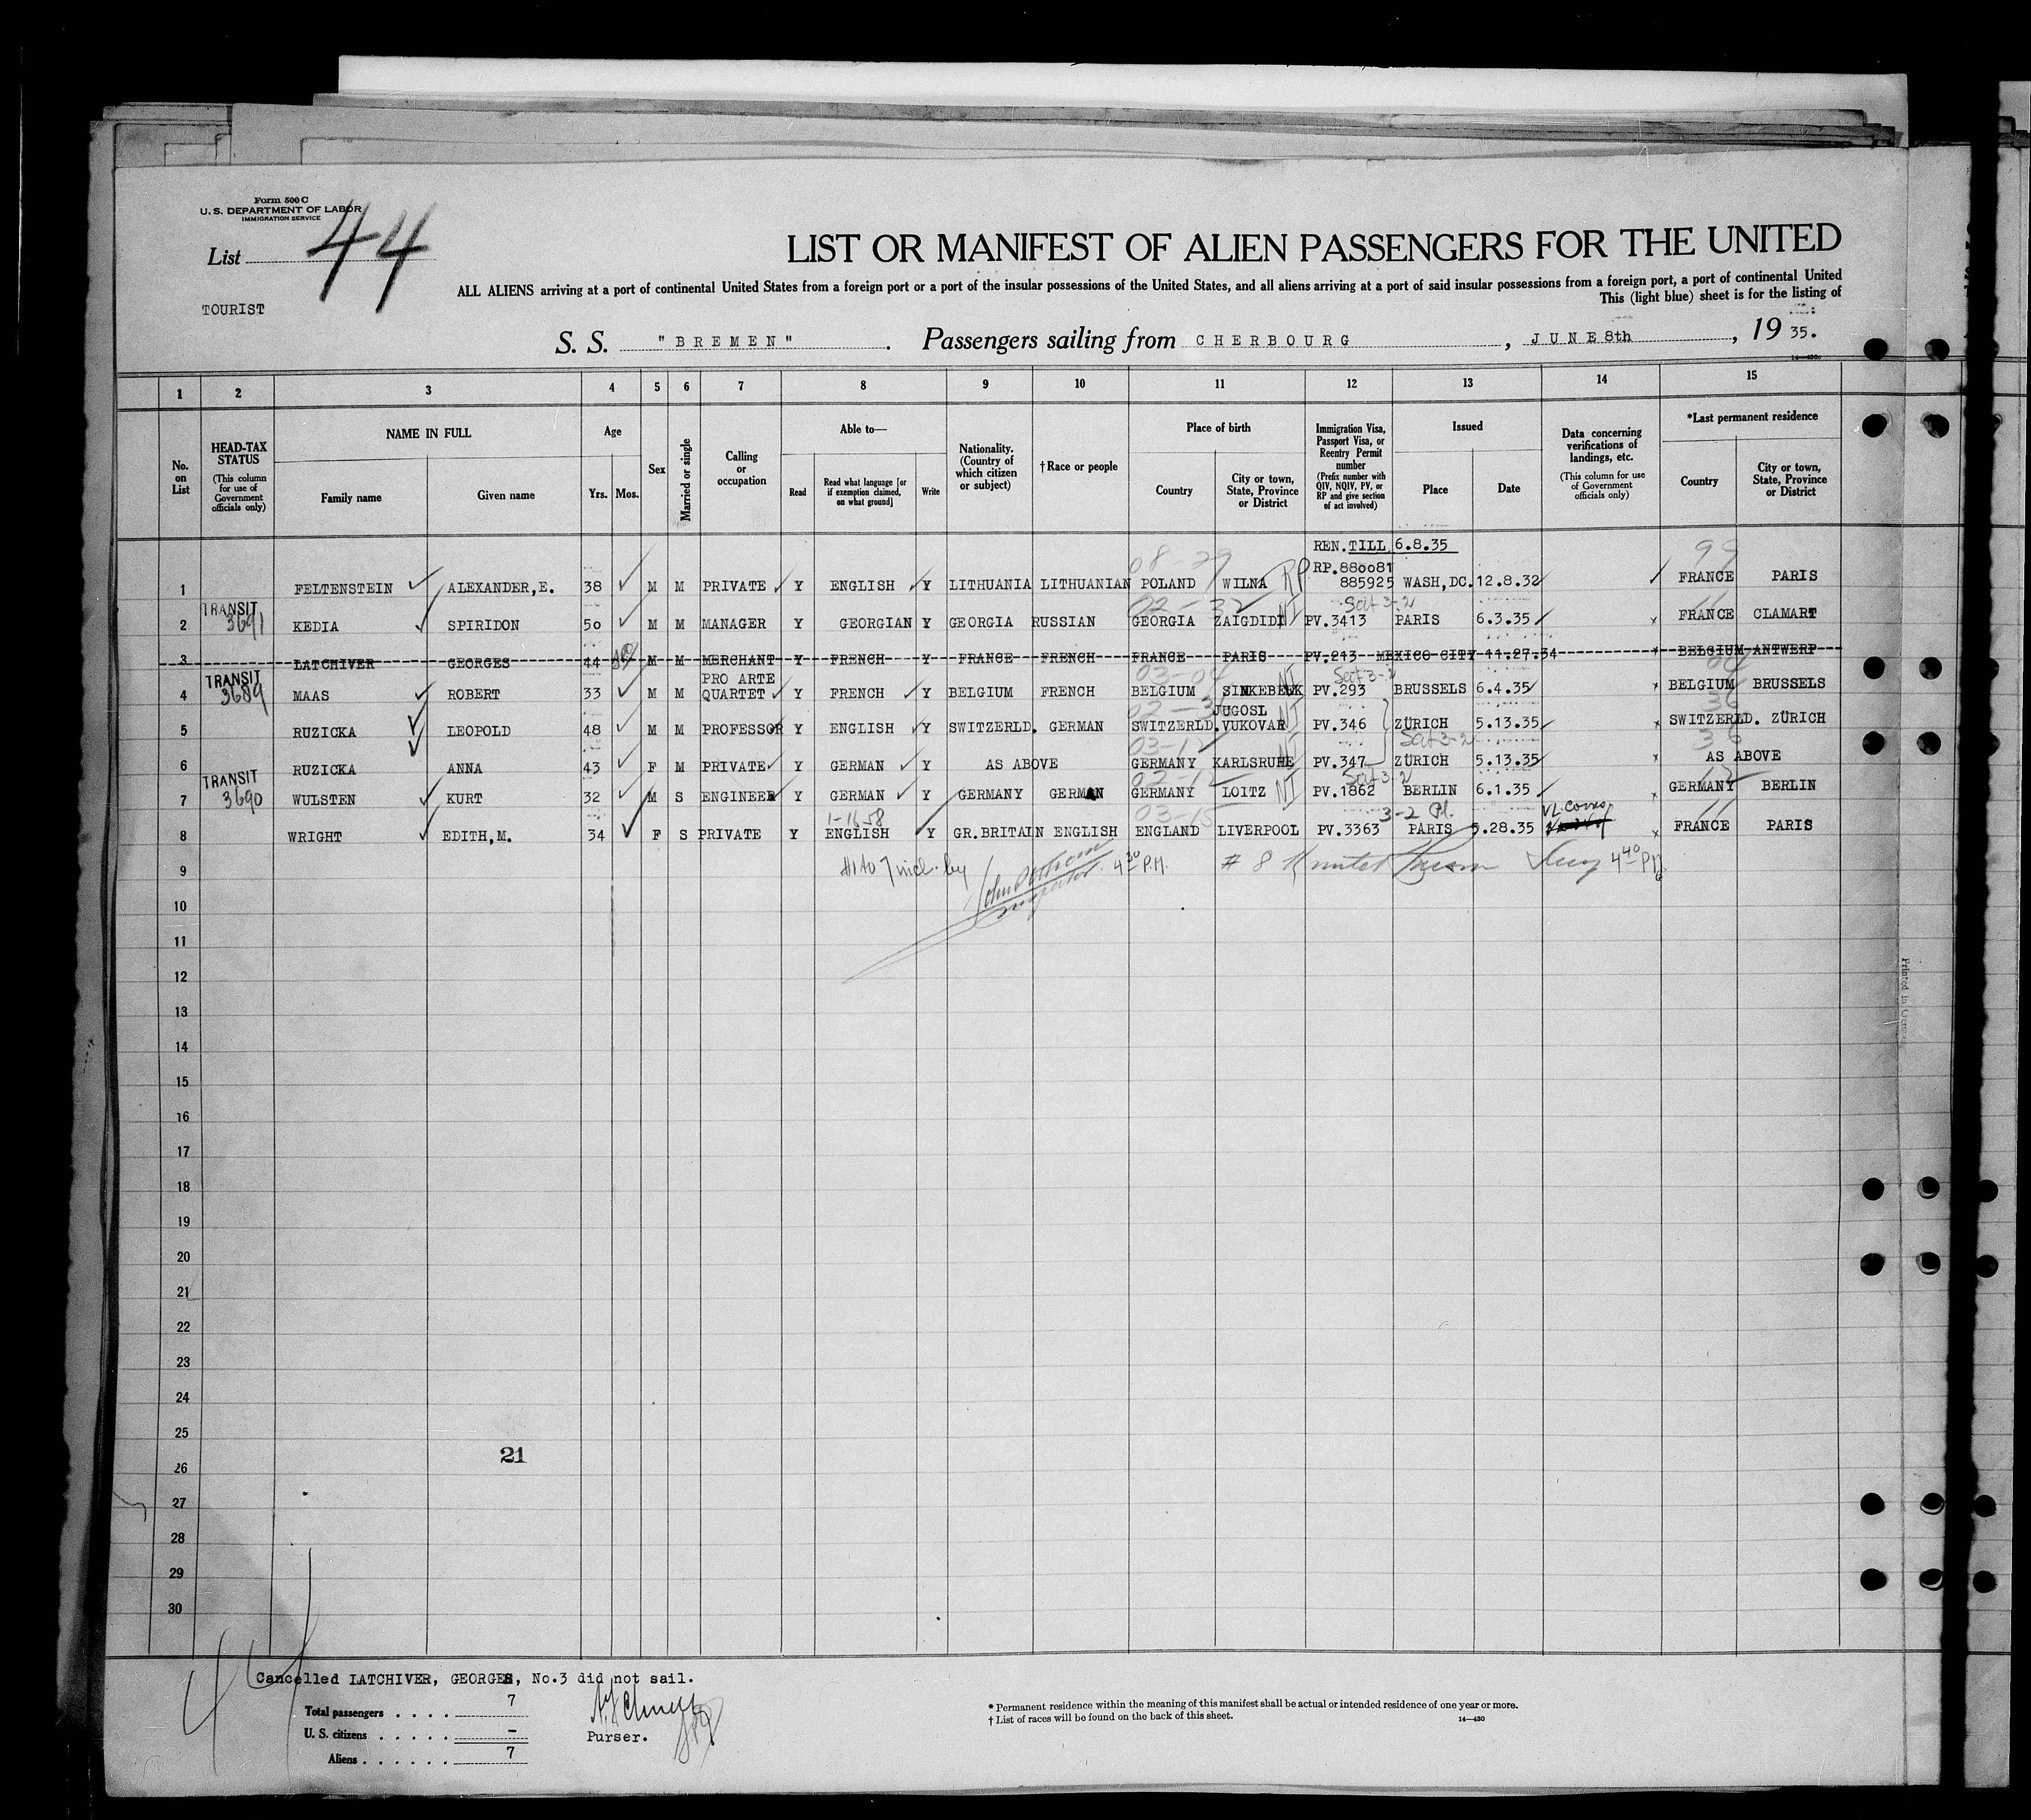 Form 500 C
U. S. DEPARTMENT OF LABOR
IMMIGRATION SERVICE
List 44
TOURIST
LIST OR MANIFEST OF ALIEN PASSENGERS FOR THE UNITED
ALL ALIENS arriving at a port of continental United States from a foreign port or a port of the insular possessions of the United States, and all aliens arriving at a port of said insular possessions from a foreign port, a port of continental United
This (light blue) sheet is for the listing of
S. S. "BREMEN" . Passengers sailing from CHERBOURG , JUNE 8th , 19 35.
14—430c
1 2 3 4 5 6 7 8 9 10 11 12 13 14 15
No. on List
HEAD-TAX STATUS
(This column for use of Government officials only)
NAME IN FULL
Family name Given name
Age
Yrs. Mos.
Sex
Married or single
Calling or occupation
Able to—
Read
Read what language [or if exemption claimed, on what ground]
Write
Nationality. (Country of which citizen or subject)
†Race or people
Place of birth
Country
City or town, State, Province or District
Immigration Visa, Passport Visa, or Reentry Permit number
(Prefix number with QIV, NQIV, PV, or RP and give section of act involved)
Issued
Place Date
Data concerning verifications of landings, etc.
(This column for use of Government officials only)
*Last permanent residence
Country
City or town, State, Province or District
REN. TILL 6.8.35
08-29 99
RP.880081
1 FELTENSTEIN ALEXANDER,E. 38 M M PRIVATE Y ENGLISH Y LITHUANIA LITHUANIAN POLAND WILNA RP 885925 WASH,DC. 12.8.32 FRANCE PARIS
TRANSIT 02-32 Sect 3-2 11
2 3691 KEDIA SPIRIDON 50 M M MANAGER Y GEORGIAN Y GEORGIA RUSSIAN GEORGIA ZAIGDIDI NI PV.3413 PARIS 6.3.35 x FRANCE CLAMART
3 LATCHIVER GEORGES 44 M M MERCHANT Y FRENCH Y FRANCE FRENCH FRANCE PARIS PV.213 MEXICO CITY 11.27.34 x BELGIUM ANTWERP
TRANSIT PRO ARTE 03-04 NI Sect 3-2 04
4 3689 MAAS ROBERT 33 M M QUARTET Y FRENCH Y BELGIUM FRENCH BELGIUM SINKEBEEK PV.293 BRUSSELS 6.4.35 x BELGIUM BRUSSELS
JUGOSL 36
5 RUZICKA LEOPOLD 48 M M PROFESSOR Y ENGLISH Y SWITZERLD. GERMAN SWITZERLD. VUKOVAR NI PV.346 ZÜRICH 5.13.35 x SWITZERLD. ZÜRICH
03-12 Sect 3-2 36
6 RUZICKA ANNA 43 F M PRIVATE Y GERMAN Y AS ABOVE GERMANY KARLSRUHE NI PV.347 ZÜRICH 5.13.35 x AS ABOVE
TRANSIT 02-12 Sect 3-2 12
7 3690 WULSTEN KURT 32 M S ENGINEER Y GERMAN Y GERMANY GERMAN GERMANY LOITZ NI PV.1862 BERLIN 6.1.35 x GERMANY BERLIN
1-16 58 03-15 3-2 11
8 WRIGHT EDITH,M. 34 F S PRIVATE Y ENGLISH Y GR.BRITAIN ENGLISH ENGLAND LIVERPOOL PV.3363 PARIS 5.28.35 x FRANCE PARIS
9 #1 to 7 incl. by John Inspector 4 30 P.M. # 8 4 40 PM
10
11
12
13
14
15
16
17
18
19
20
21
22
23
24
25
21
26
27
28
29
30
44
Cancelled LATCHIVER, GEORGES, No.3 did not sail.
Total passengers . . . . 7
U. S. citizens . . . . . —
Aliens . . . . . . 7
Purser.
* Permanent residence within the meaning of this manifest shall be actual or intended residence of one year or more.
† List of races will be found on the back of this sheet.
14—430